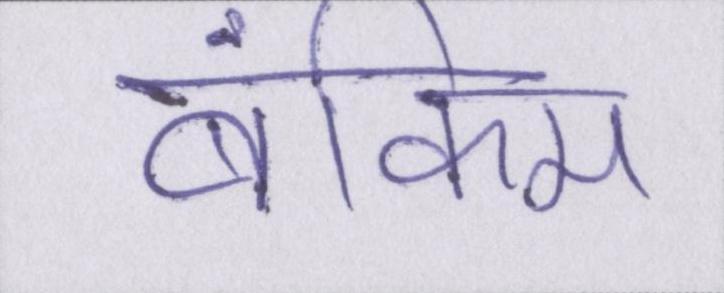 बंकिम